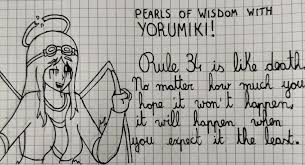 PEARLS OF WISDOM WITH
YORUMIKI!
Rule 34 is like death.
No matter how much you
hope it won't happen,
it will happen when
you expect it the least.